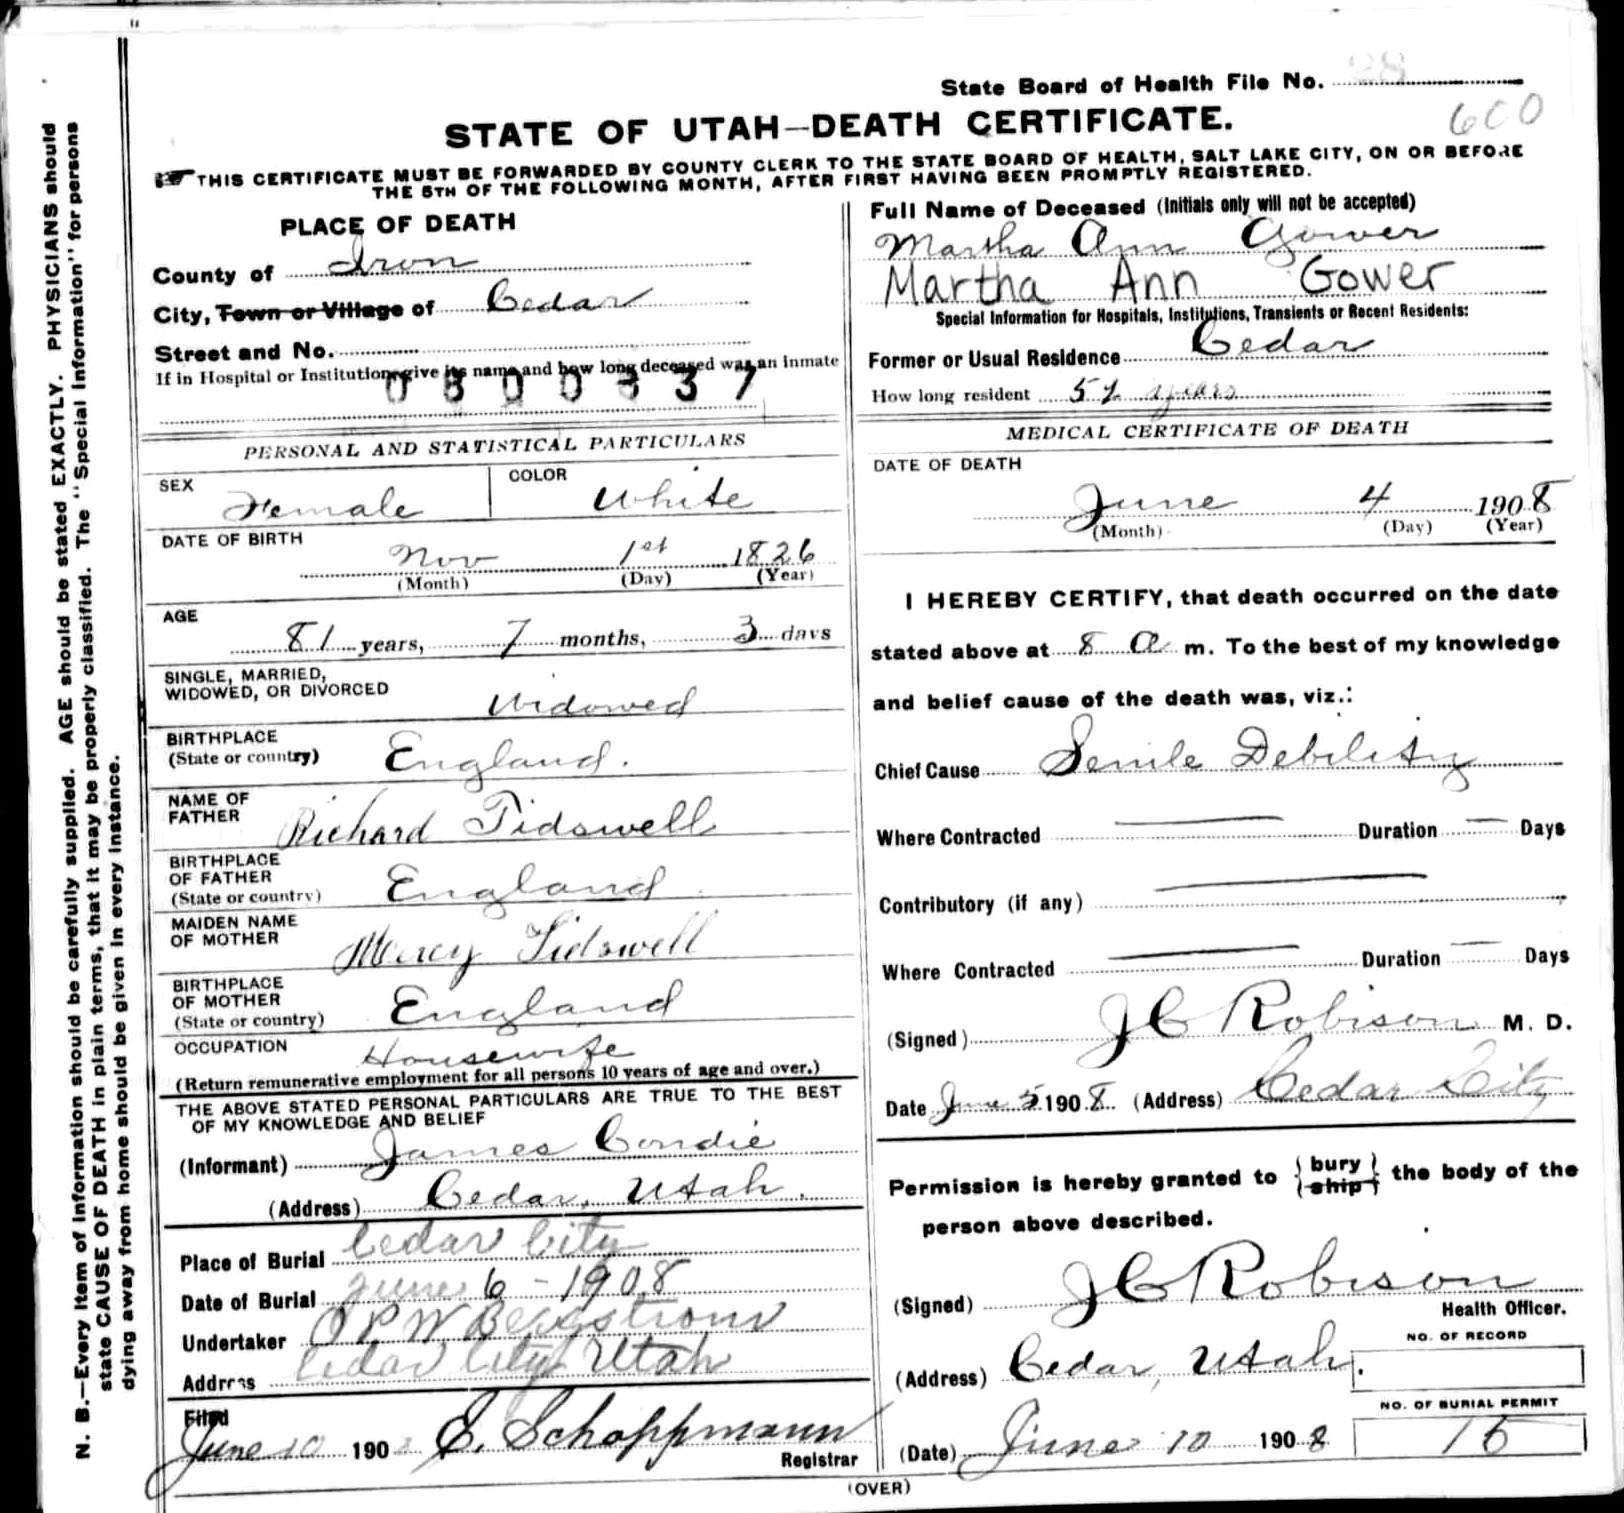 State Board of Health File No. 28
600
STATE OF UTAH—DEATH CERTIFICATE.
THIS CERTIFICATE MUST BE FORWARDED BY COUNTY CLERK TO THE STATE BOARD OF HEALTH, SALT LAKE CITY, ON OR BEFORE
THE 5TH OF THE FOLLOWING MONTH, AFTER FIRST HAVING BEEN PROMPTLY REGISTERED.
PLACE OF DEATH
County of Iron
City, Town or Village of Cedar
Street and No.
If in Hospital or Institution, give its name and how long deceased was an inmate
PERSONAL AND STATISTICAL PARTICULARS
SEX Female COLOR White
DATE OF BIRTH
Nov 1st 1826
(Month) (Day) (Year)
AGE
81 years, 7 months, 3 days
SINGLE, MARRIED,
WIDOWED, OR DIVORCED Widowed
BIRTHPLACE
(State or country) England.
NAME OF
FATHER Richard Tidswell
BIRTHPLACE
OF FATHER
(State or country) England
MAIDEN NAME
OF MOTHER Mercy Tidswell
BIRTHPLACE
OF MOTHER
(State or country) England
OCCUPATION Housewife
(Return remunerative employment for all persons 10 years of age and over.)
THE ABOVE STATED PERSONAL PARTICULARS ARE TRUE TO THE BEST
OF MY KNOWLEDGE AND BELIEF
(Informant) James Condie
(Address) Cedar, Utah.
Place of Burial Cedar City
Date of Burial June 6 - 1908
Undertaker
Address Cedar City Utah
Filed
June 10 190 E. Schoppmann
Registrar
Full Name of Deceased (Initials only will not be accepted)
Martha Ann Gower
Martha Ann Gower
Special Information for Hospitals, Institutions, Transients or Recent Residents:
Former or Usual Residence Cedar
How long resident 52 years
MEDICAL CERTIFICATE OF DEATH
DATE OF DEATH
June 4 1908
(Month) (Day) (Year)
I HEREBY CERTIFY, that death occurred on the date
stated above at 8 a m. To the best of my knowledge
and belief cause of the death was, viz.:
Chief Cause Senile Debility
Where Contracted — Duration — Days
Contributory (if any) —
Where Contracted — Duration — Days
(Signed) J C Robison M. D.
Date June 5 1908. (Address) Cedar City
Permission is hereby granted to { bury } the body of the
{ ship }
person above described.
(Signed) J C Robison
Health Officer.
NO. OF RECORD
(Address) Cedar, Utah.
NO. OF BURIAL PERMIT
(Date) June 10 1908 15
(OVER)
N. B.—Every item of information should be carefully supplied. AGE should be stated EXACTLY. PHYSICIANS should
state CAUSE OF DEATH in plain terms, that it may be properly classified. The "Special Information" for persons
dying away from home should be given in every instance.